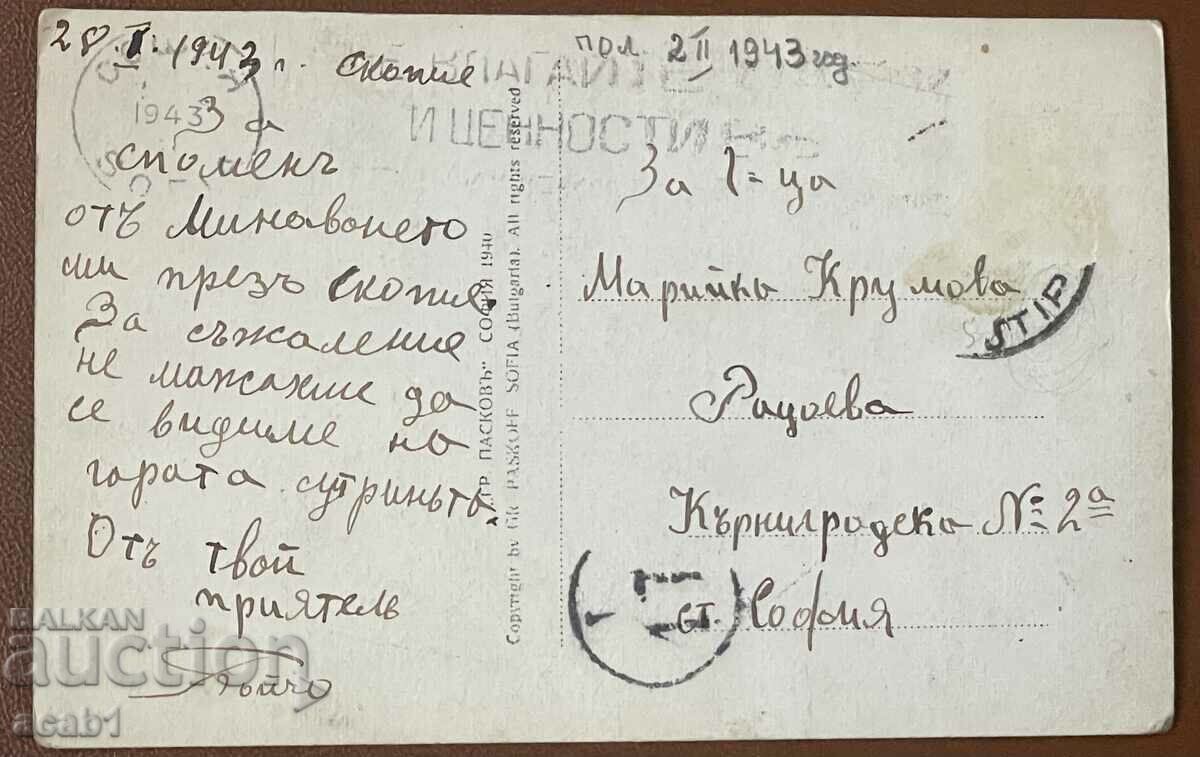 28.I.1943 г. Скопие
За
споменъ
отъ Минаването
ми презъ Скопие.
За съжаление
не можахме да
се видиме на
гарата сутриньта.
Отъ твой
приятель
пол. 2 II 1943 год.
И ЦЕННОСТИ
1943
ГР. ПАСКОВЪ" СОФИЯ 1940
Copyright by GR. PASKOFF SOFIA (Bulgaria). All rights reserved
За Г-ца
Марийка Крумова
STIP
Рацоева
Кърниградска № 2а
ст. София
BALKAN
auction
acab1